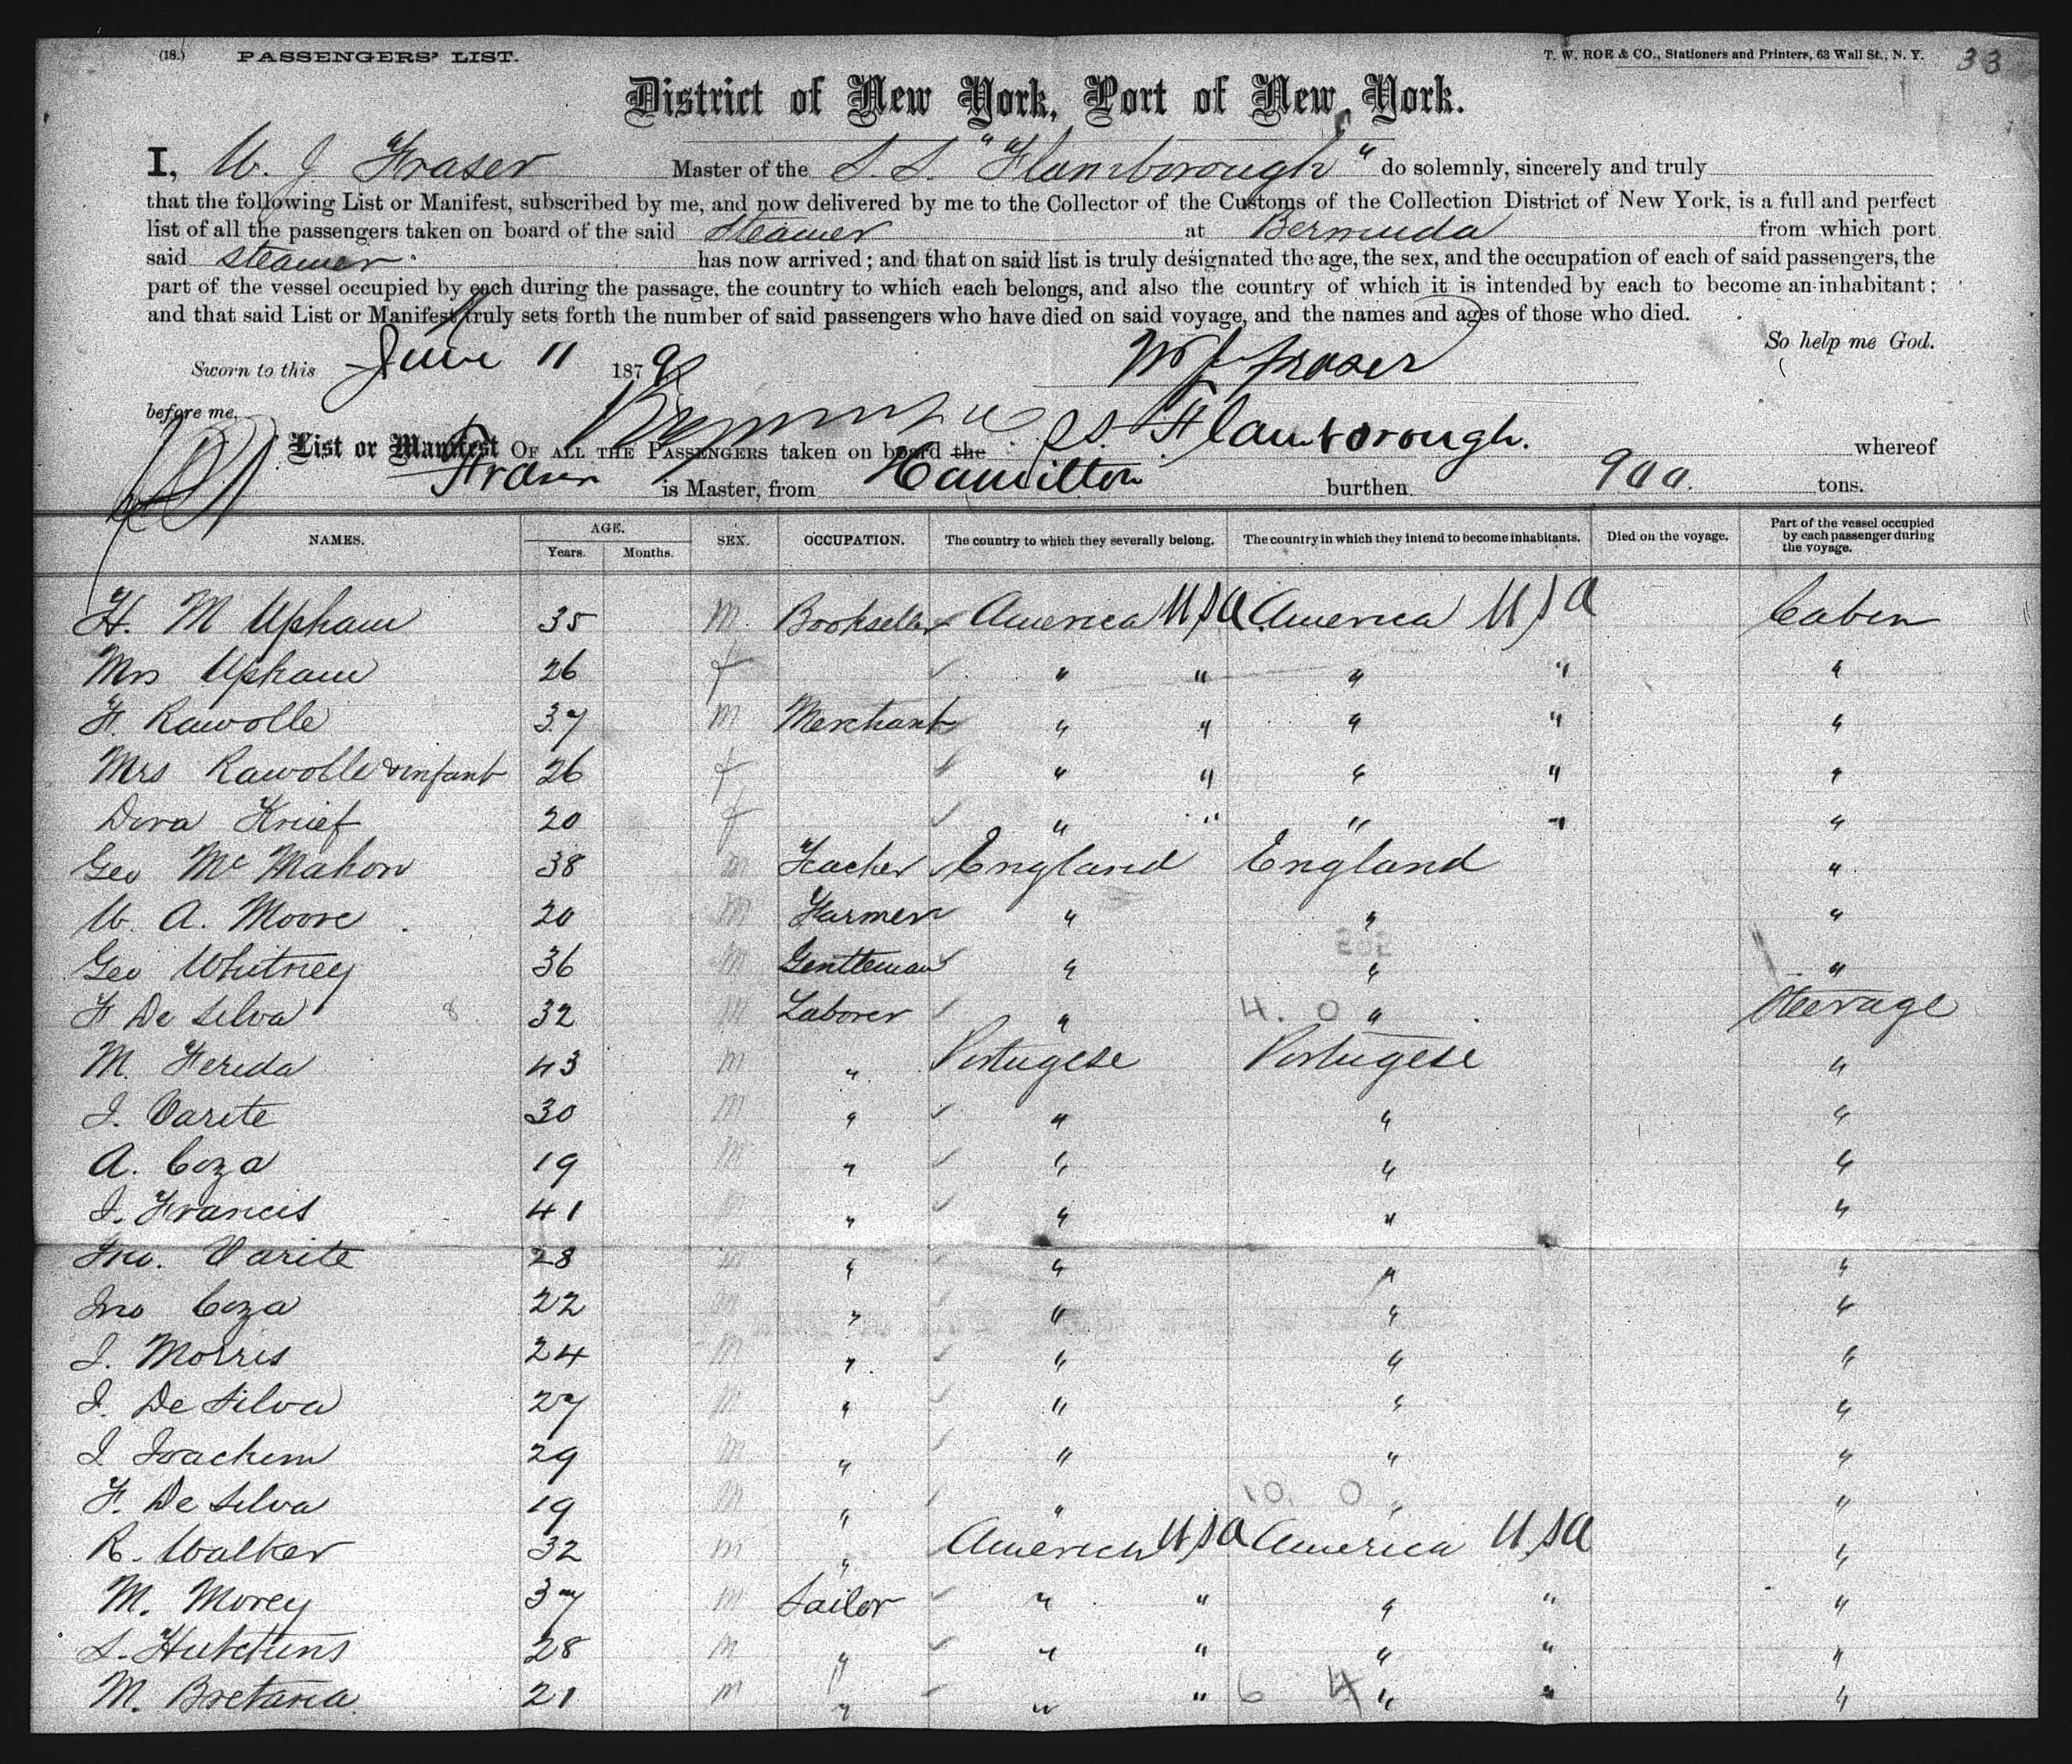 (18.) PASSENGERS' LIST. T. W. ROE & CO., Stationers and Printers, 63 Wall St., N. Y. 33
District of New York, Port of New York.
I, W. J. Fraser Master of the S. S. "Flamborough" do solemnly, sincerely and truly
that the following List or Manifest, subscribed by me, and now delivered by me to the Collector of the Customs of the Collection District of New York, is a full and perfect
list of all the passengers taken on board of the said Steamer at Bermuda from which port
said Steamer has now arrived; and that on said list is truly designated the age, the sex, and the occupation of each of said passengers, the
part of the vessel occupied by each during the passage, the country to which each belongs, and also the country of which it is intended by each to become an inhabitant;
and that said List or Manifest truly sets forth the number of said passengers who have died on said voyage, and the names and ages of those who died.
So help me God.
Sworn to this June 11 1879 W J Fraser
before me,
List or Manifest OF ALL THE PASSENGERS taken on board the SS. Flamborough. whereof
Fraser is Master, from Hamilton burthen 900. tons.
NAMES. AGE. Years. Months. SEX. OCCUPATION. The country to which they severally belong. The country in which they intend to become inhabitants. Died on the voyage. Part of the vessel occupied by each passenger during the voyage.
H. M Upham 35 M. Bookseller America USA America USA Cabin
Mrs Upham 26 f " " " " "
F. Rawolle 37 M Merchant " " " " "
Mrs Rawolle & infant 26 f " " " " "
Dora Krief 20 f " " " " "
Geo McMahon 38 m Teacher England England "
W. A. Moore 20 M Farmer " " "
Geo Whitney 36 M Gentleman " " "
F De Silva 8 32 M Laborer " 4. 0 " Steerage
M. Fereda 43 M " Portugese Portugese "
J. Varite 30 M " " " "
A. Coza 19 M " " " "
J. Francis 41 M " " " "
Jno. Varite 28 M " " " "
Jno Coza 22 M " " " "
J. Morris 24 M " " " "
J. De Silva 27 M " " " "
J Joachim 29 M " " " "
F. De Silva 19 M " " 10. 0 " "
R. Walker 32 M " America USA America USA "
M. Morey 37 M Sailor " " " " "
S. Hutchins 28 M " " " " " "
M. Bretana 21 M " " " 6 4 " " "